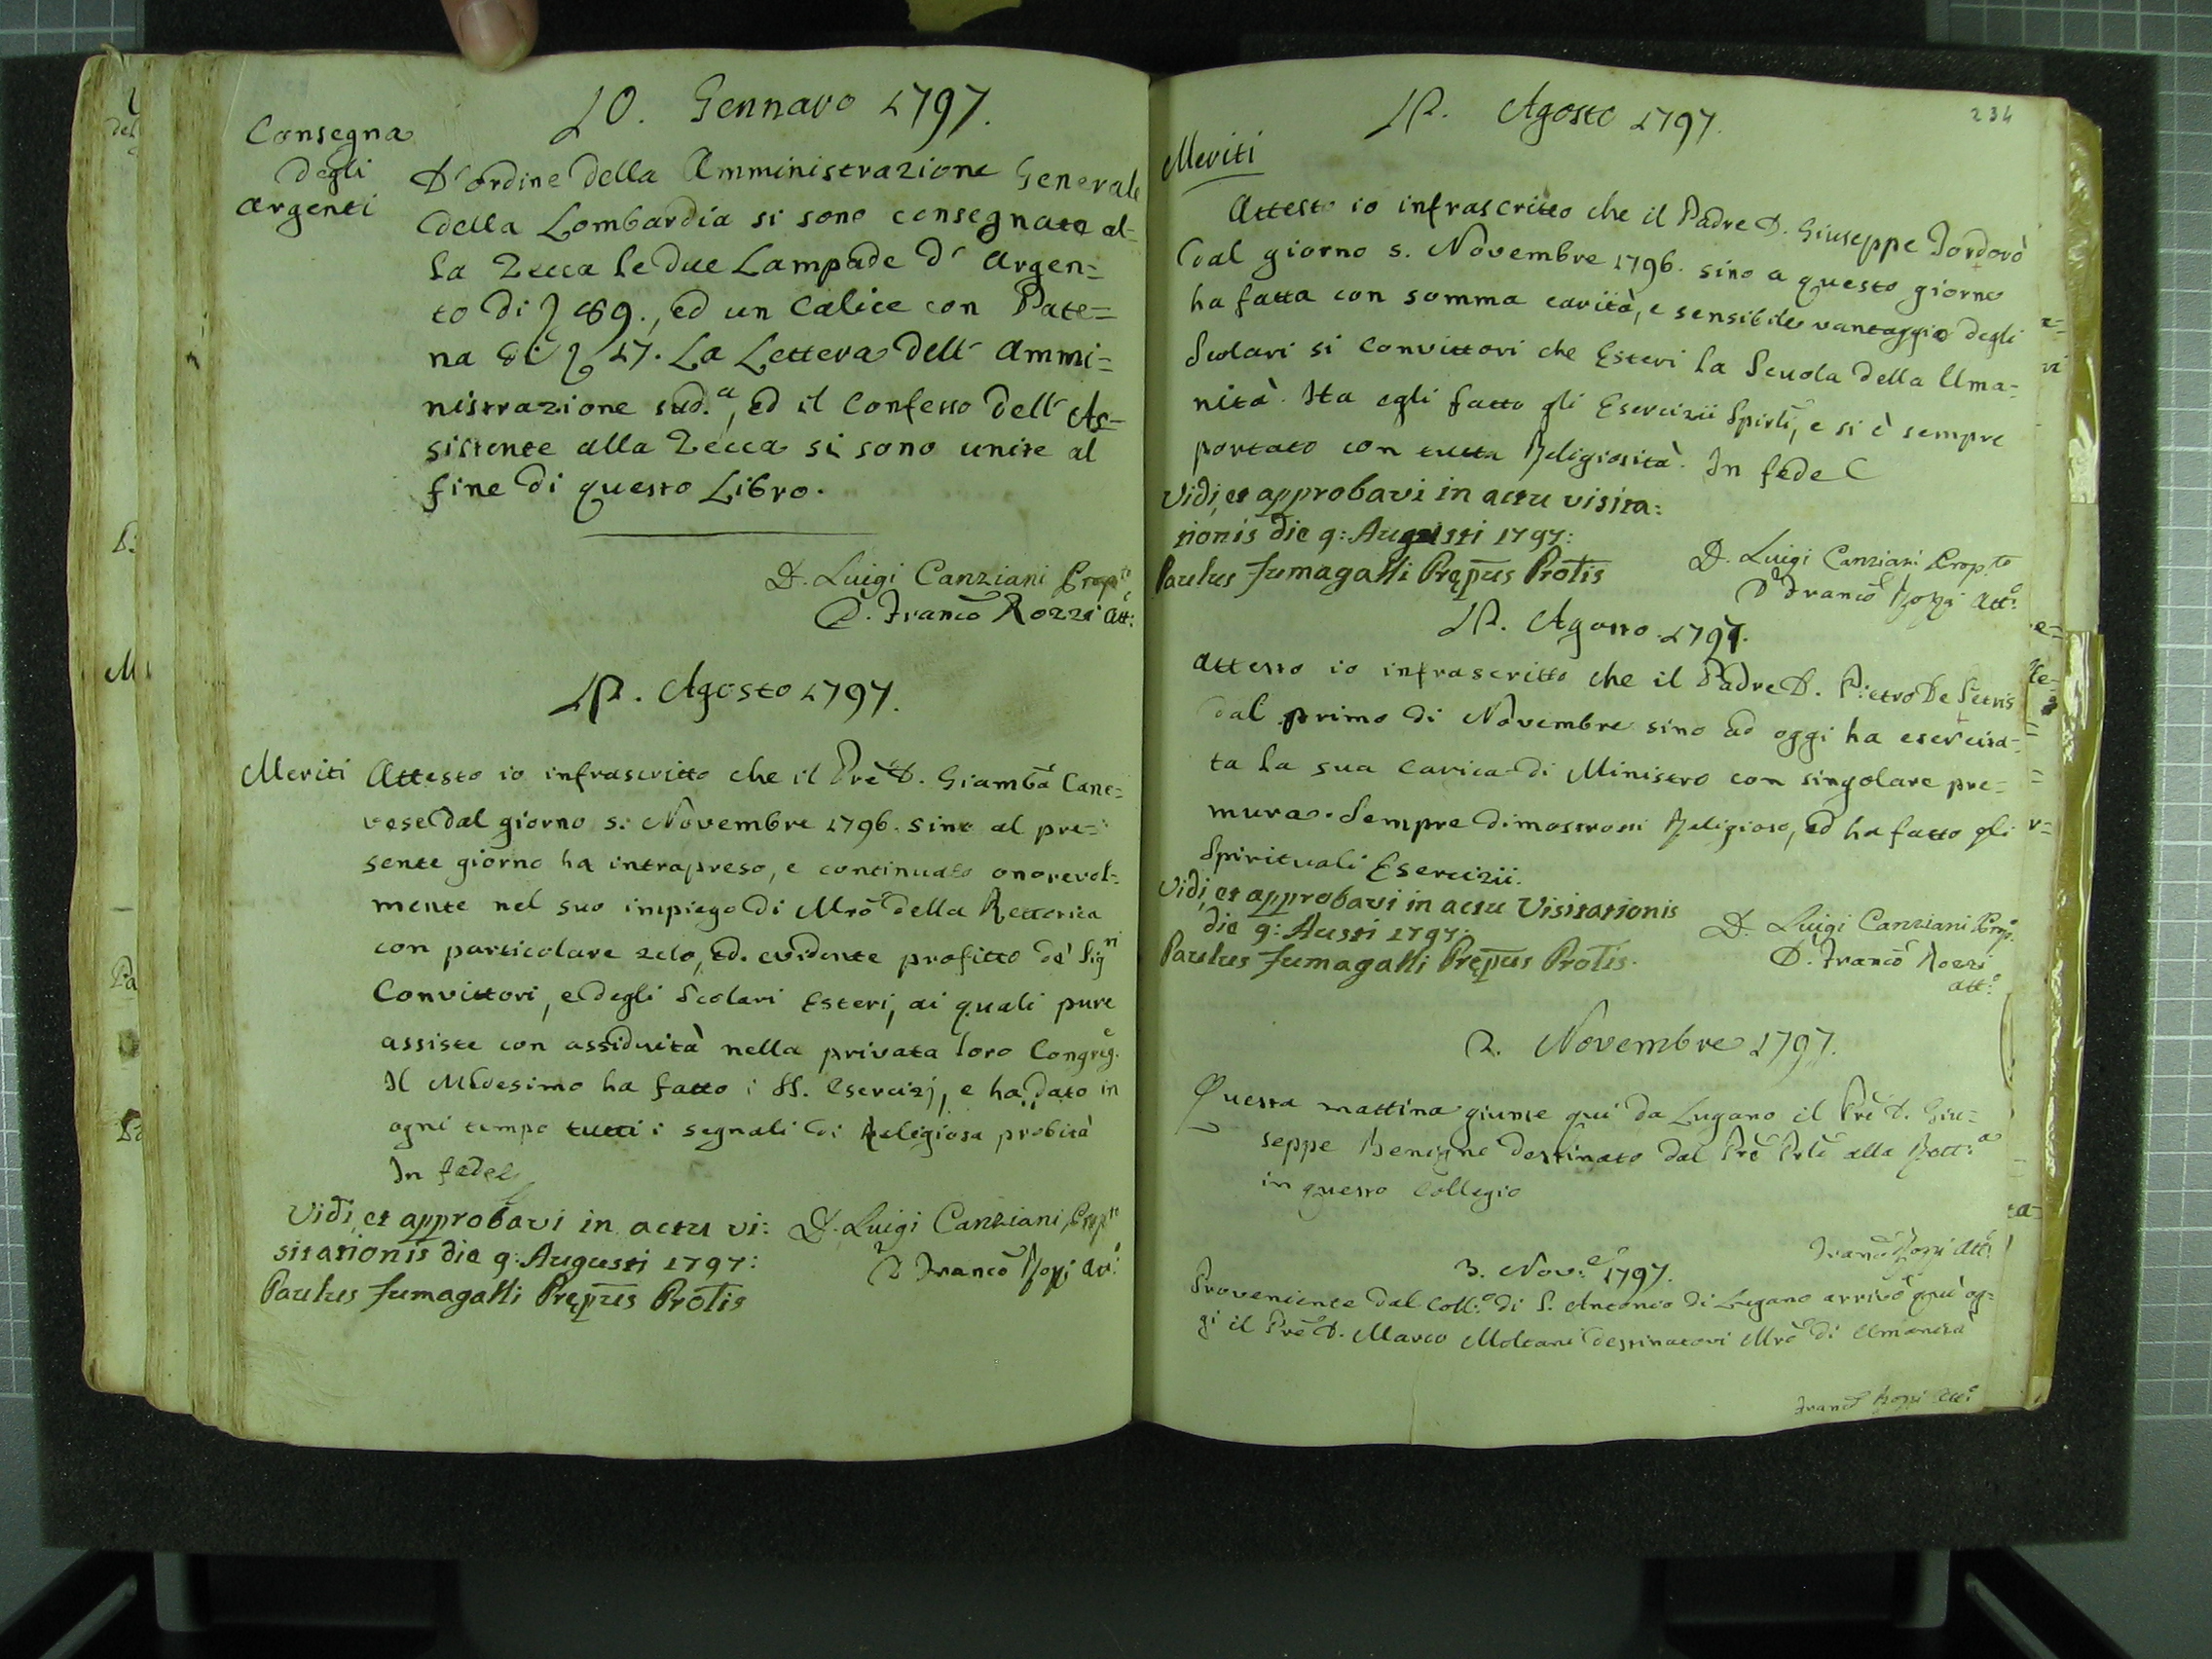 10. Gennaro 1797.
Consegna
degli
argenti
D'ordine della Amministrazione Generale
della Lombardia si sono consegnate al=
la Zecca le due Lampade d'Argen=
to di 89., ed un Calice con Pate=
na di 17. La Lettera dell'Ammi=
nistrazione sud.a, ed il Confesso dell'As=
sistente alla Zecca si sono unite al
fine di questo Libro.
D. Luigi Canziani Prop.to
D. Franco Rozzi Att:
12. Agosto 1797.
Meriti
Attesto io infrascritto che il Pre D. Giamba Cane=
vese dal giorno 5. Novembre 1796. sino al pre=
sente giorno ha intrapreso, e continuato onorevol=
mente nel suo impiego di Mro della Rettorica
con particolare zelo, ed evidente profitto de' Sig.ri
Convittori, e degli Scolari Esteri, ai quali pure
assiste con assiduità nella privata loro Congreg.e
Il Mdesimo ha fatto i SS. Esercizj, e ha dato in
ogni tempo tutti i segnali di Religiosa probità
In fede
Vidi, et approbavi in actu vi:
sitationis die 9: Augusti 1797:
Paulus Fumagalli Pręp̄us Prōlis
D. Luigi Canziani, Prop.to
D Franco Rozzi Att.o
234
12. Agosto 1797.
Meriti
Attesto io infrascritto che il Padre D. Giuseppe
dal giorno 5. Novembre 1796. sino a questo giorno
ha fatta con somma carità, e sensibile vantaggio degli
Scolari si Convittori che Esteri la Scuola della Uma=
nità. Ha egli fatto gli Esercizii Spirli, e si è sempre
portato con tutta Religiosità. In fede
Vidi, et approbavi in actu visita:
tionis die 9: Augusti 1797:
Paulus Fumagalli Pręp̄us Prōlis
D. Luigi Canziani Prop.to
D Franco Rozzi Att.o
12. Agosto 1797.
Attesto io infrascritto che il Padre D. Pietro De Petris
dal primo di Novembre sino ad oggi ha esercita=
ta la sua carica di Ministro con singolare pre=
mura. Sempre dimostrossi Religioso, ed ha fatto gli
Spirituali Esercizii.
Vidi, et approbavi in actu Visitationis
die 9: Austi 1797:
Paulus Fumagalli Pręp̄us Prōlis.
D. Luigi Canziani Prop.
D. Franco Rozzi
Att.o
2. Novembre 1797.
Questa mattina giunse qui da Lugano il Pre D. Giu=
seppe Benigno destinato dal Pre Prle alla Rett.a
in questo Collegio
Franco Rozzi Att.o
3. Nov.e 1797.
Proveniente dal Coll.o di S. Antonio di Lugano arrivò quì og=
gi il Pre D. Marco Molcani destinatovi Mro di Umanità
Franco Rozzi Att.o